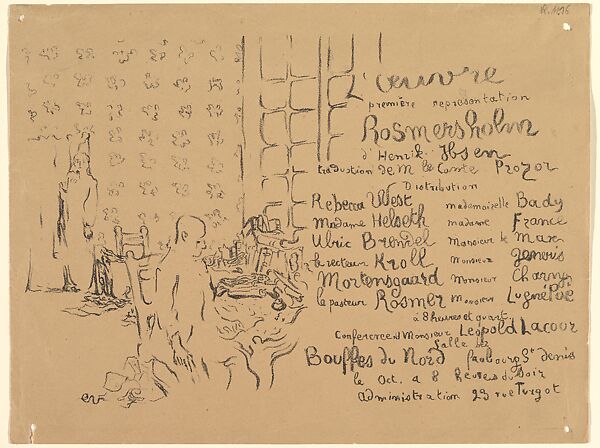 L'œuvre
première representation
Rosmersholm
d'Henrik Ibsen
traduction de M le Comte Prozor
Distribution
Rebecca West mademoiselle Bady
Madame Helseth madame France
Ulric Brendel Monsieur
le recteur Kroll Monsieur
Mortensgaard Monsieur Charny
le pasteur Rosmer Monsieur Lugné Poe
à 8 heures et quart.
Conference de Monsieur Leopold Lacour
Salle des
Bouffes du Nord faubourg St denis
le Oct. a 8 heures du Soir
administration 23 rue Turgot
ev